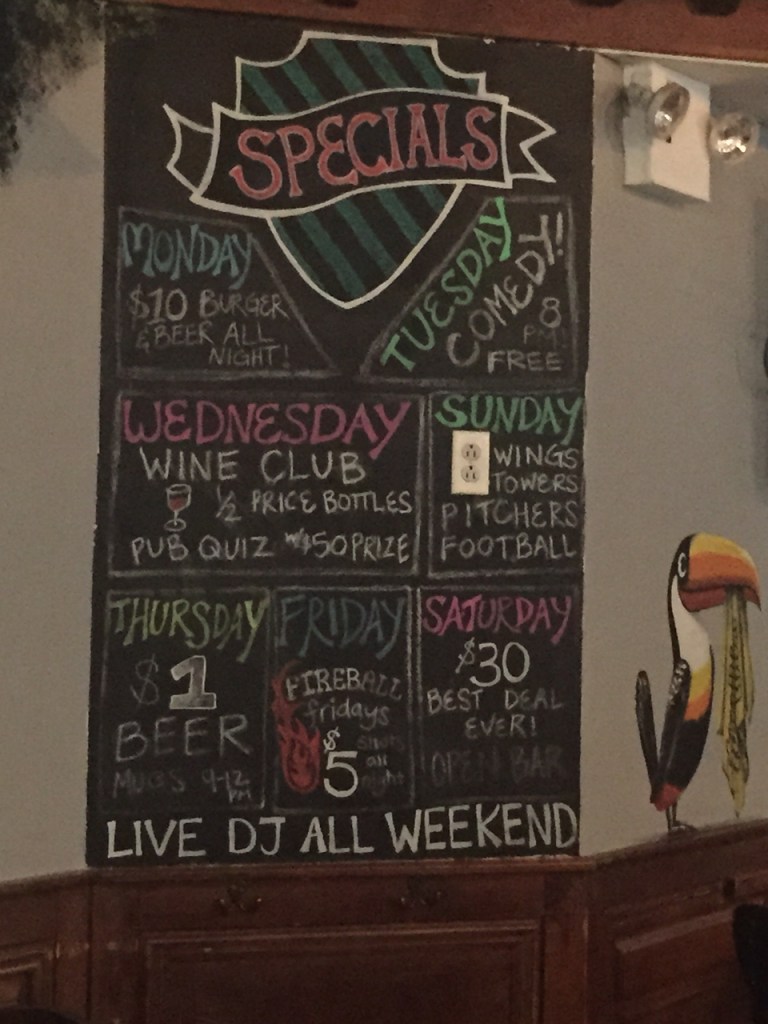 SPECIALS
MONDAY
$10 BURGER
& BEER ALL
NIGHT!
TUESDAY
COMEDY!
8
PM
FREE
WEDNESDAY
WINE CLUB
1/2 PRICE BOTTLES
PUB QUIZ W/$50 PRIZE
SUNDAY
WINGS
TOWERS
PITCHERS
FOOTBALL
THURSDAY
$1
BEER
MUGS 9-12
PM
FRIDAY
FIREBALL
fridays
$5 shots
all
night
SATURDAY
$30
BEST DEAL
EVER!
OPEN BAR
LIVE DJ ALL WEEKEND